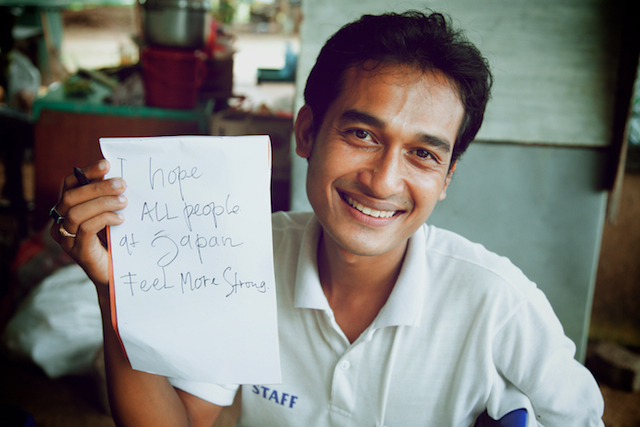 I hope
ALL people
at Japan
Feel More Strong.
STAFF